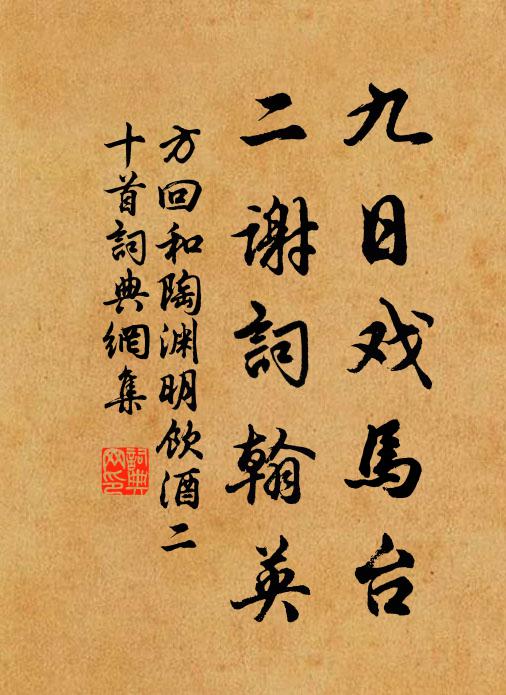 九日戏馬台
二谢詞翰英
方回和陶渊明飲酒二
十首詞典網集
詞典
网印